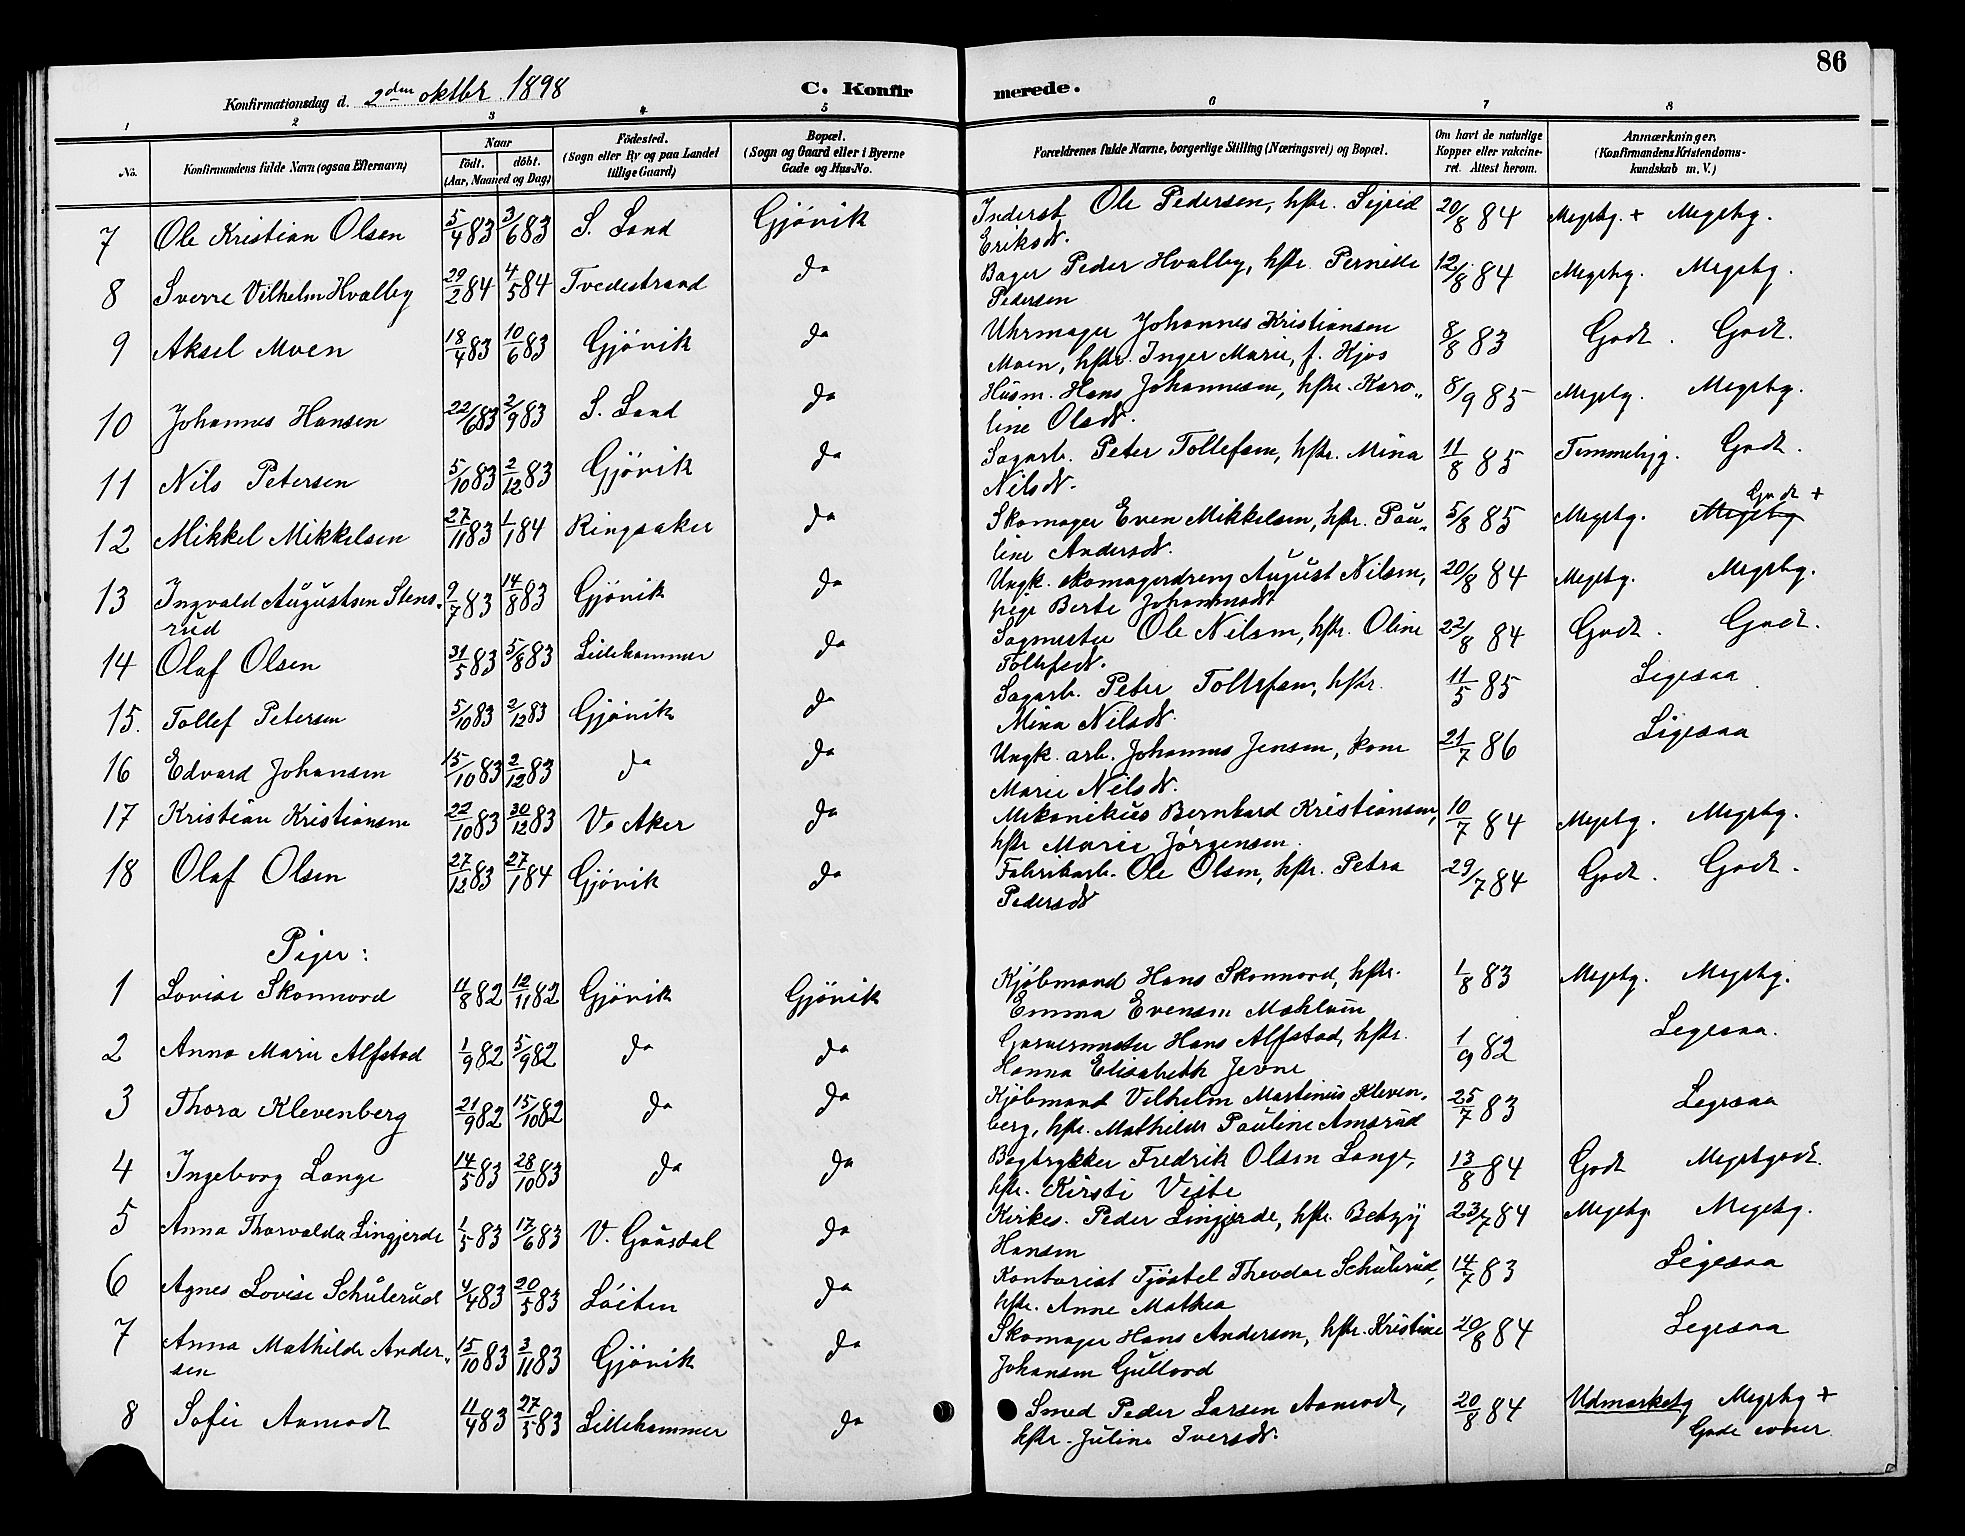 86
Konfirmationsdag d. 2den oktbr. 1898
C. Konfirmerede.
1 2 3 4 5 6 7 8
No.
Konfirmandens fulde Navn (ogsaa Efternavn)
Naar
födt. döbt.
(Aar, Maaned og Dag)
Födested.
(Sogn eller By og paa Landet
tillige Gaard)
Bopæl.
(Sogn og Gaard eller i Byerne
Gade og Hus-No.
Forældrenes fulde Navne, borgerlige Stilling (Næringsvei) og Bopæl.
Om havt de naturlige
Kopper eller vakcine-
ret. Attest herom.
Anmærkninger.
(Konfirmandens Kristendoms-
kundskab m. V.)
7 Ole Kristian Olsen 5/4 83 3/6 83 S. Land Gjövik Inderst Ole Pedersen, hstr. Sigrid 20/8 84 Megetg. + Megetg.
Eriksdt.
8 Sverre Vilhelm Hvalby 29/2 84 4/5 84 Tvedestrand do Bager Peder Hvalby, hstr. Pernille 12/8 84 Megetg. Megetg.
Pedersen
9 Aksel Moen 18/4 83 10/6 83 Gjövik do Uhrmager Johannes Kristiansen 8/8 83 Godt. Godt.
Moen, hstr. Inger Marie, f. Hjos
10 Johannes Hansen 22/6 83 2/9 83 S. Land do Husm. Hans Johannesen, hstr. Karo„ 8/9 85 Megetg. Megetg.
line Olsdt.
11 Nils Petersen 5/10 83 2/12 83 Gjövik do Sagarb. Peter Tollefsen, hstr. Mina 11/8 85 Temmeligg. Godt.
Nilsdt.
12 Mikkel Mikkelsen 27/11 83 1/1 84 Ringsaker do Skomager Even Mikkelsen, hstr. Pau„ 5/8 85 Megetg. Megetg Godt +
line Andersdt.
13 Ingvald Augustsen Stens„ 9/7 83 14/8 83 Gjövik do Ungk. skomagerdreng August Nilsen, 20/8 84 Megetg. Megetg.
rud pige Berte Johannesdt
14 Olaf Olsen 31/5 83 5/8 83 Lillehammer do Sagmester Ole Nilsen, hstr. Oline 22/8 84 Godt. Godt.
Tollefsdt.
15. Tollef Petersen 5/10 83 2/12 83 Gjövik do Sagarb. Peter Tollefsen, hstr. 11/5 85 Ligesaa
Mina Nilsdt.
16 Edvard Johansen 15/10 83 2/12 83 do do Ungk. arb. Johannes Jensen, kone 21/7 86 Ligesaa
Marie Nilsdt.
17 Kristian Kristiansen 22/10 83 30/12 83 V. Aker do Mekanikus Bernhard Kristiansen, 10/7 84 Megetg. Megetg.
hstr Marie Jörgensen.
18 Olaf Olsen 27/12 83 27/1 84 Gjövik do Fabrikarb. Ole Olsen, hstr. Petra 29/7 84 Godt. Godt.
Pedersdt
Piger:
1 Lovise Skonnord 11/8 82 12/11 82 Gjövik Gjövik Kjöbmand Hans Skonnord, hstr. 1/8 83 Megetg. Megetg.
Emma Evensen Mæhlum
2 Anna Marie Alfstad 1/9 82 5/9 82 do do Garvermester Hans Alfstad, hstr. 1/9 82 Ligesaa.
Hanna Elisabeth Jevne
3 Thora Klevenberg 21/9 82 15/10 82 do do Kjöbmand Vilhelm Martinus Kleven„ 25/7 83 Ligesaa
berg, hstr. Mathilde Pauline Amsrud
4 Ingeborg Lange 14/5 83 28/10 83 do do Bogtrykker Fredrik Olsen Lange, 13/8 84 Godt Megetgodt.
hstr. Kirsti Veste
5 Anna Thorvalda Lingjerde 1/5 83 17/6 83 V. Gausdal do Kirkes. Peder Lingjerde, hstr. Betzy 23/7 84 Megetg Megetg.
Hansen
6 Agnes Lovise Schulerud 4/4 83 20/5 83 Löiten do Kontorist Tjöstel Theodor Schulerud, 14/7 83 Ligesaa
hstr. Anne Mathea
7 Anna Mathilde Ander„ 15/10 83 3/11 83 Gjövik do Skomager Hans Andersen, hstr. Kristine 20/8 84 Ligesaa
sen Johansen Gullord
8 Sofie Aamodt 11/4 83 27/5 83 Lillehammer do Smed Peder Larsen Aamodt, 20/8 84 Udmærketg Megetg +
hstr. Juline Iversdt. Gode evner